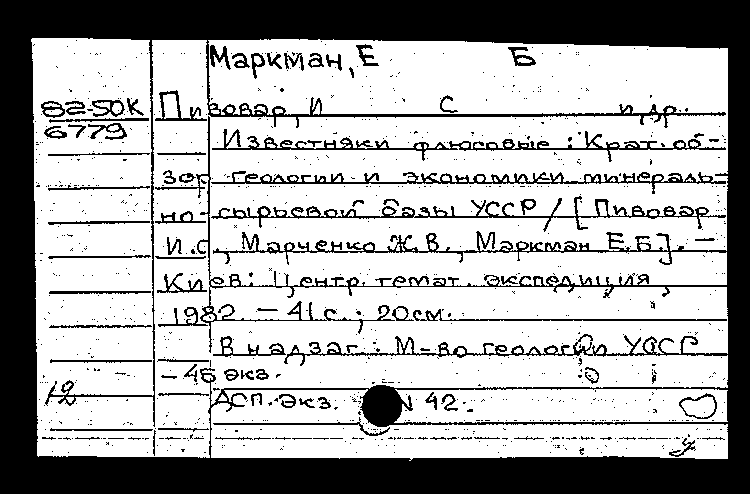 Маркман, Е Б
82-50К Пивовар, И С и др.
6779
Известняки флюсовые : Крат. об-
зор геологии и экономики минераль-
но-сырьевой базы УССР / [Пивовар
И.С., Марченко Ж.В., Маркман Е.Б.]. —
Киев: Центр. темат. экспедиция,
1982. — 41 с. ; 20 см.
В надзаг.: М-во геологии УССР
— 46 экз.
12 АСП. экз. N 42.